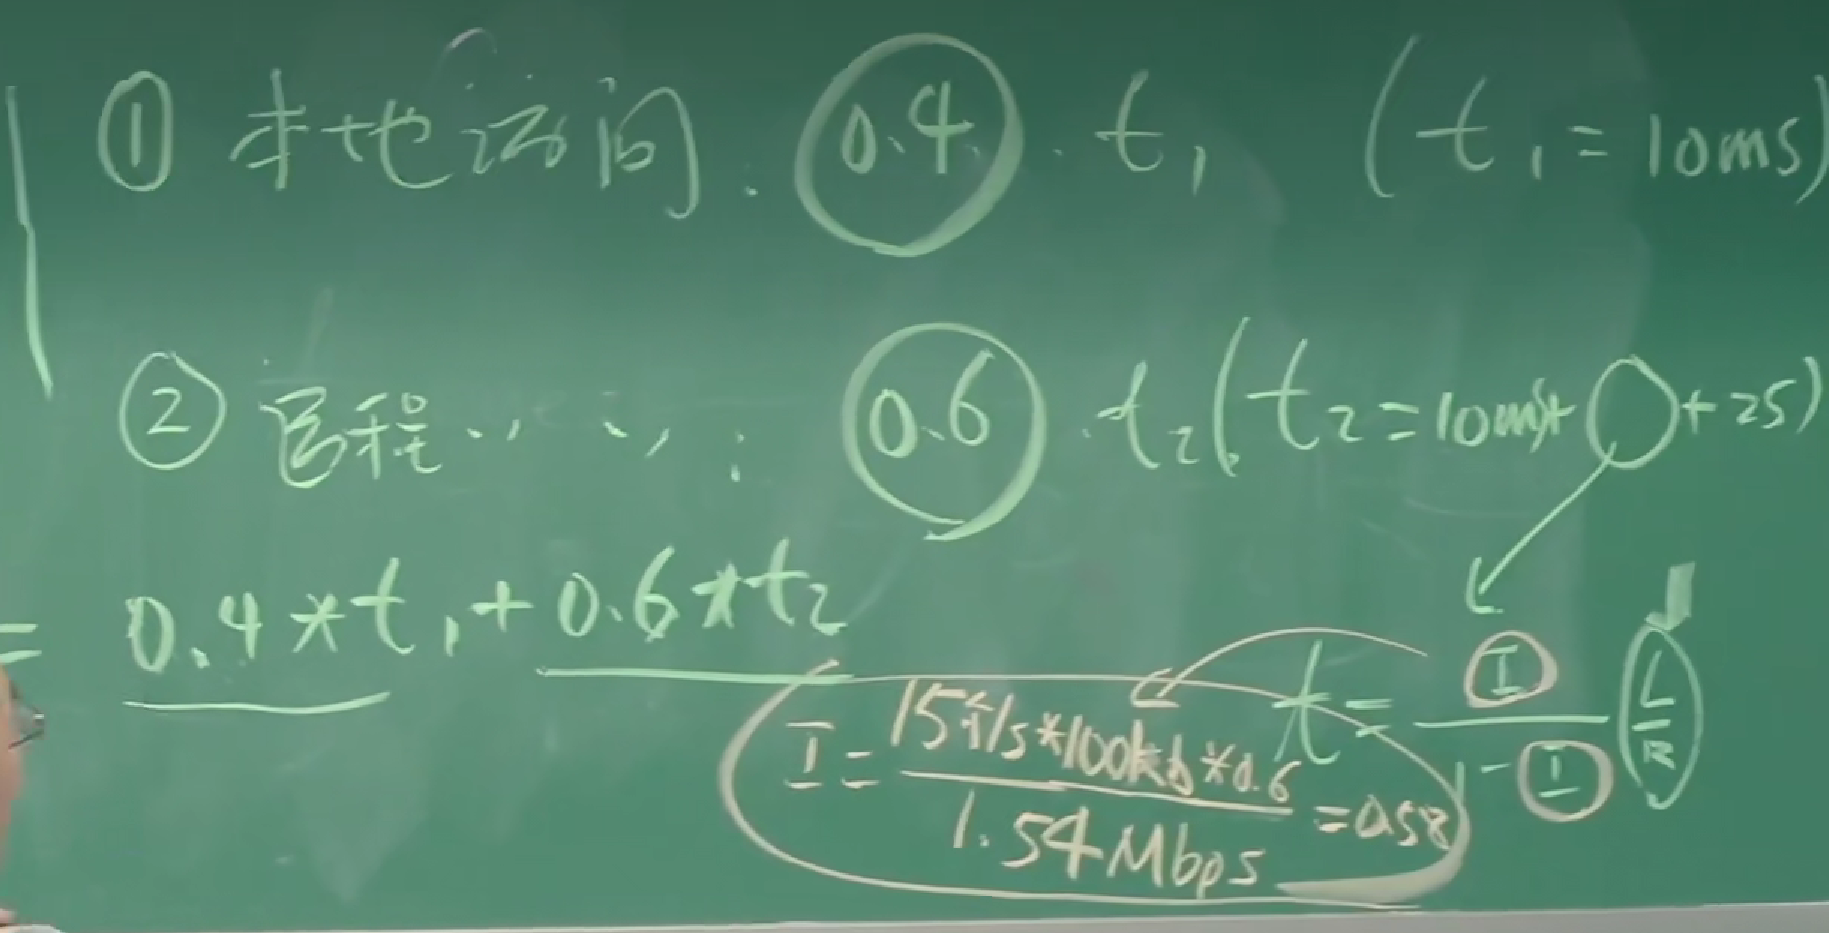 ① 本地访问: 0.4 · t₁ (t₁=10ms)
② 远程·····: 0.6 · t₂(t₂=10ms+○+2S)
= 0.4*t₁+0.6*t₂
t = I/(1-I) L/R
I = 15个/s*100kb*0.6/1.54Mbps =0.58